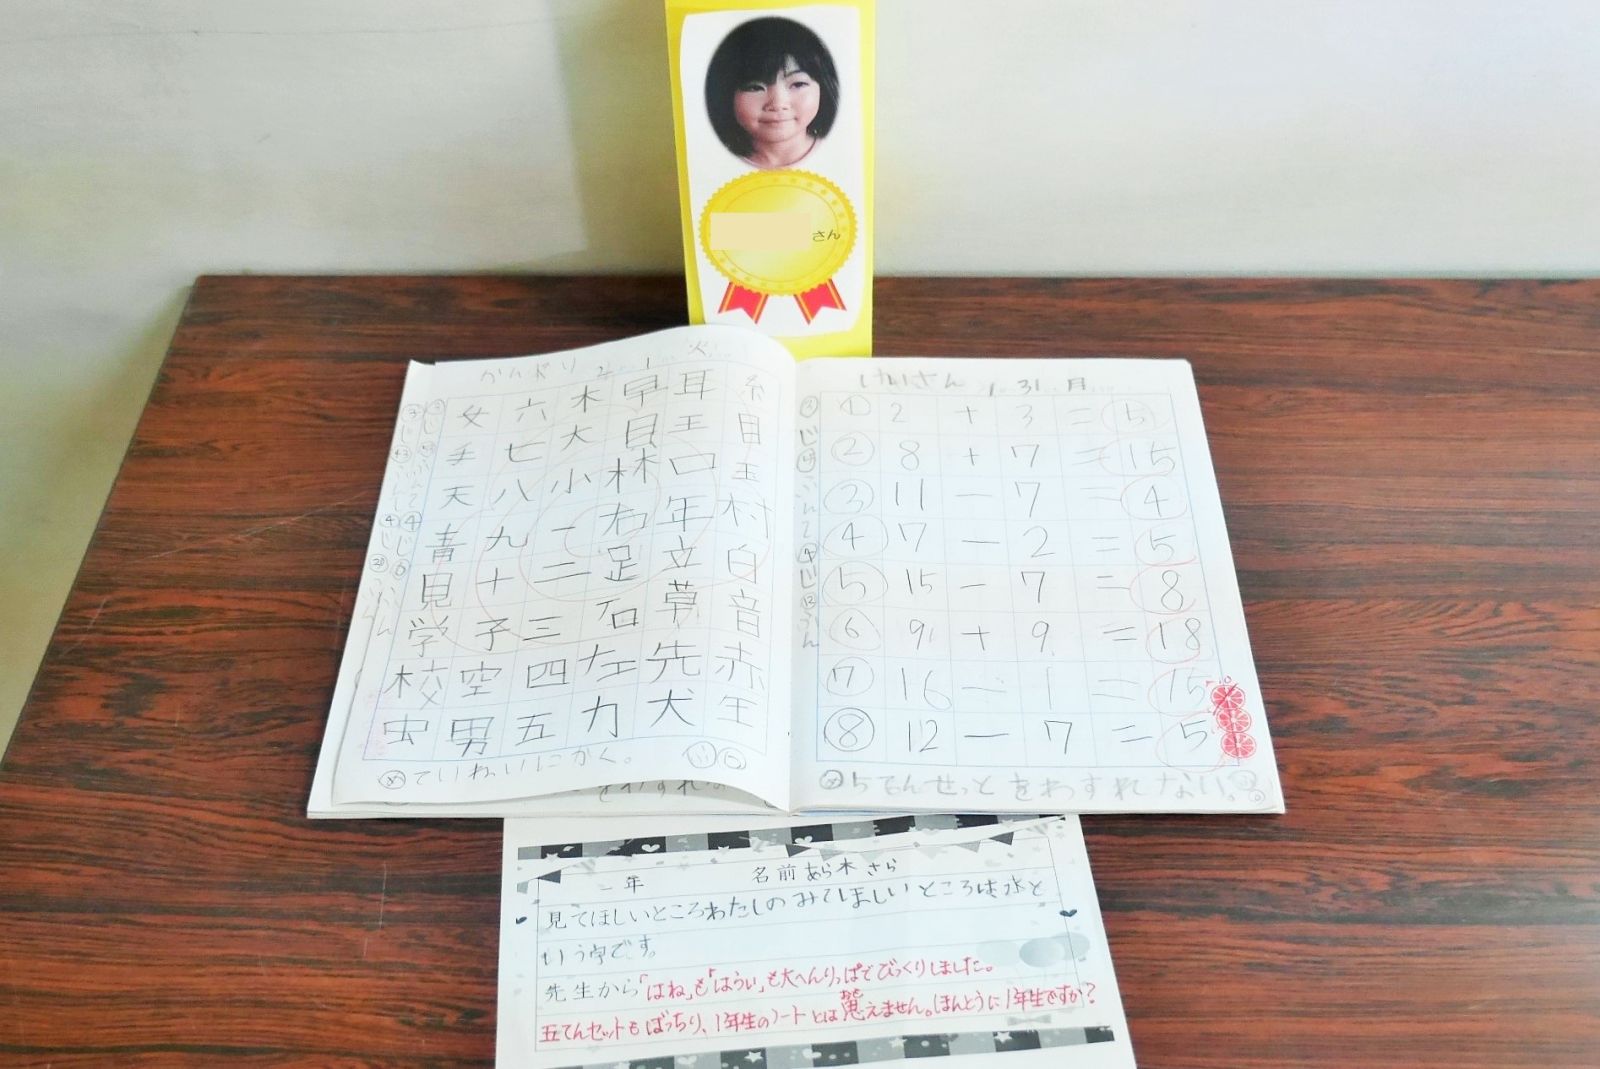 さん
かんじ 2 1 火
糸 目 玉 村 白 音 赤 生
耳 王 口 年 立 草 先 犬
早 貝 林 右 足 石 左 力
木 大 小 一 二 三 四 五
六 七 八 九 十 子 空 男
女 手 天 青 見 学 校 虫
ていねいにかく。
けいさん 1 31 月
① 2 + 3 = 5
② 8 + 7 = 15
③ 11 - 7 = 4
④ 7 - 2 = 5
⑤ 15 - 7 = 8
⑥ 9 + 9 = 18
⑦ 16 - 1 = 15
⑧ 12 - 7 = 5
㋱ 5てんせっとをわすれない。
一年 名前 あら木さら
見てほしいところわたしのみてほしいところは水と
いう字です。
先生から「はね」も「はらい」も大へんりっぱでびっくりしました。
五てんセットもばっちり、1年生のノートとは思えません。ほんとうに1年生ですか?